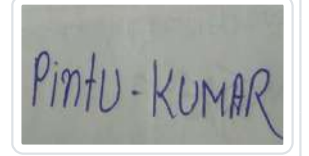 PintU - KUMAR